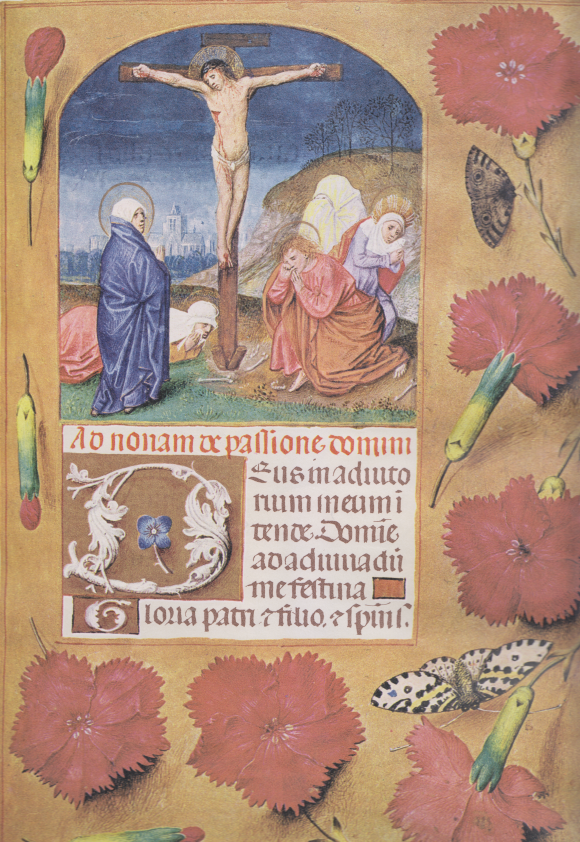 Ad nonam de passione domini
Deus in adiuto
rium meum i
tende. Domie
ad adiuuadū
me festina
Gloria patri ⁊ filio. ⁊ spiu̅i s̄.